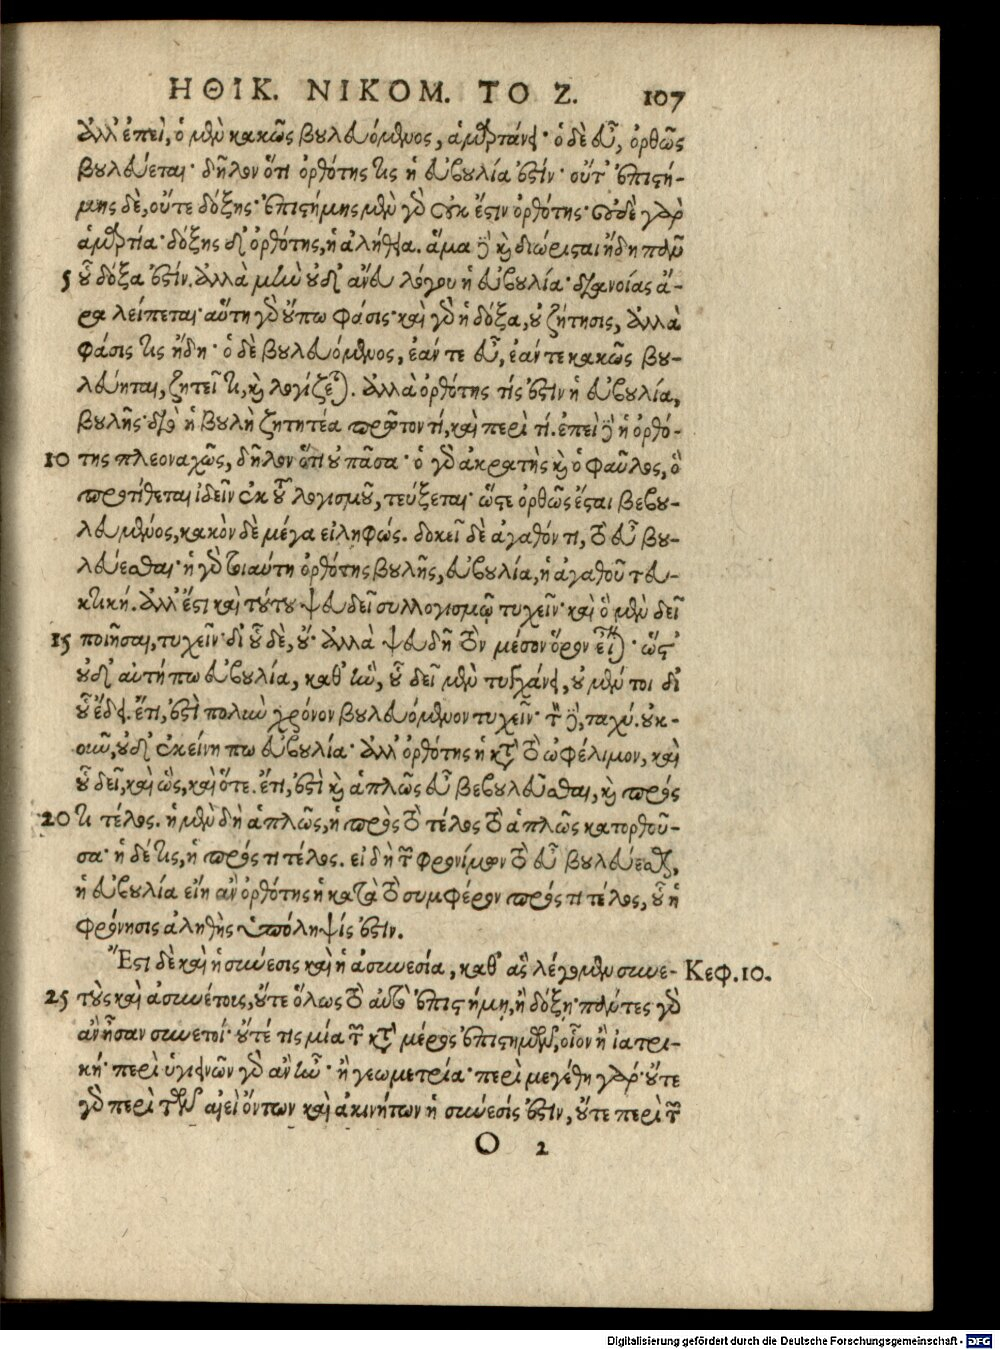 ΗΘΙΚ. ΝΙΚΟΜ. ΤΟ Ζ. 107
ἀλλ' ἐπεὶ, ὁ μὲν κακῶς βουλευόμενος, ἁμαρτάνει· ὁ δὲ εὖ, ὀρθῶς
βουλεύεται· δῆλον ὅτι ὀρθότης τις ἡ εὐβουλία ἐστίν· οὔτ' ἐπιστή-
μης δὲ, οὔτε δόξης· ἐπιστήμης μὲν γὰρ οὐκ ἔστιν ὀρθότης· οὐδὲ γὰρ
ἁμαρτία· δόξης δ' ὀρθότης, ἡ ἀλήθεια. ἅμα δὲ καὶ διώρισται ἤδη πᾶν
5 οὗ δόξα ἐστίν. ἀλλὰ μὴν οὐδ' ἄνευ λόγου ἡ εὐβουλία· διανοίας ἄ-
ρα λείπεται· αὕτη γὰρ οὔπω φάσις· καὶ γὰρ ἡ δόξα, οὐ ζήτησις, ἀλλὰ
φάσις τις ἤδη· ὁ δὲ βουλευόμενος, ἐάν τε εὖ, ἐάν τε κακῶς βου-
λεύηται, ζητεῖ τι, καὶ λογίζεται. ἀλλὰ ὀρθότης τίς ἐστιν ἡ εὐβουλία,
βουλῆς· διὸ ἡ βουλὴ ζητητέα πρῶτον τί, καὶ περὶ τί. ἐπεὶ δὲ ἡ ὀρθό-
10 της πλεοναχῶς, δῆλον ὅτι οὐ πᾶσα· ὁ γὰρ ἀκρατὴς καὶ ὁ φαῦλος, ὃ
προτίθεται ἰδεῖν ἐκ τοῦ λογισμοῦ, τεύξεται· ὥστε ὀρθῶς ἔσται βεβου-
λευμένος, κακὸν δὲ μέγα εἰληφώς. δοκεῖ δὲ ἀγαθόν τι, τὸ εὖ βου-
λεύεσθαι· ἡ γὰρ τοιαύτη ὀρθότης βουλῆς, εὐβουλία, ἡ ἀγαθοῦ τευ-
κτική. ἀλλ' ἔστι καὶ τούτου ψευδεῖ συλλογισμῷ τυχεῖν· καὶ ὃ μὲν δεῖ
15 ποιῆσαι, τυχεῖν· δι' οὗ δὲ, οὔ· ἀλλὰ ψευδῆ τὸν μέσον ὅρον εἶναι· ὥστ'
οὐδ' αὐτή πω εὐβουλία, καθ' ἣν, οὗ δεῖ μὲν τυγχάνει, οὐ μέν τοι δι'
οὗ ἔδει. ἔτι, ἐστὶ πολὺν χρόνον βουλευόμενον τυχεῖν· τὸν δὲ, ταχύ. οὐκ-
οῦν, οὐδ' ἐκείνη πω εὐβουλία· ἀλλ' ὀρθότης ἡ κατὰ τὸ ὠφέλιμον, καὶ
οὗ δεῖ, καὶ ὣς, καὶ ὅτε. ἔτι, ἐστὶ καὶ ἁπλῶς εὖ βεβουλεῦσθαι, καὶ πρός
20 τι τέλος. ἡ μὲν δὴ ἁπλῶς, ἡ πρὸς τὸ τέλος τὸ ἁπλῶς κατορθοῦ-
σα· ἡ δέ τις, ἡ πρός τι τέλος. εἰ δὴ τῶν φρονίμων τὸ εὖ βουλεύεσθαι,
ἡ εὐβουλία εἴη ἂν ὀρθότης ἡ κατὰ τὸ συμφέρον πρός τι τέλος, οὗ ἡ
φρόνησις ἀληθὴς ὑπόληψίς ἐστιν.
Ἔστι δὲ καὶ ἡ σύνεσις καὶ ἡ ἀσυνεσία, καθ' ἃς λέγομεν συνε- Κεφ. 10.
25 τοὺς καὶ ἀσυνέτοις, οὔτε ὅλως τὸ αὐτὸ ἐπιστήμη, ἢ δόξη· πάντες γὰρ
ἂν ἦσαν συνετοί· οὔτέ τις μία τῶν κατὰ μέρος ἐπιστημῶν, οἷον ἢ ἰατρι-
κή· περὶ ὑγιεινῶν γὰρ ἂν ἦν· ἢ γεωμετρία· περὶ μεγέθη γάρ· οὔτε
γὰρ περὶ τῶν ἀεὶ ὄντων καὶ ἀκινήτων ἡ σύνεσίς ἐστιν, οὔτε περὶ τῶν
O 2
Digitalisierung gefördert durch die Deutsche Forschungsgemeinschaft - DFG